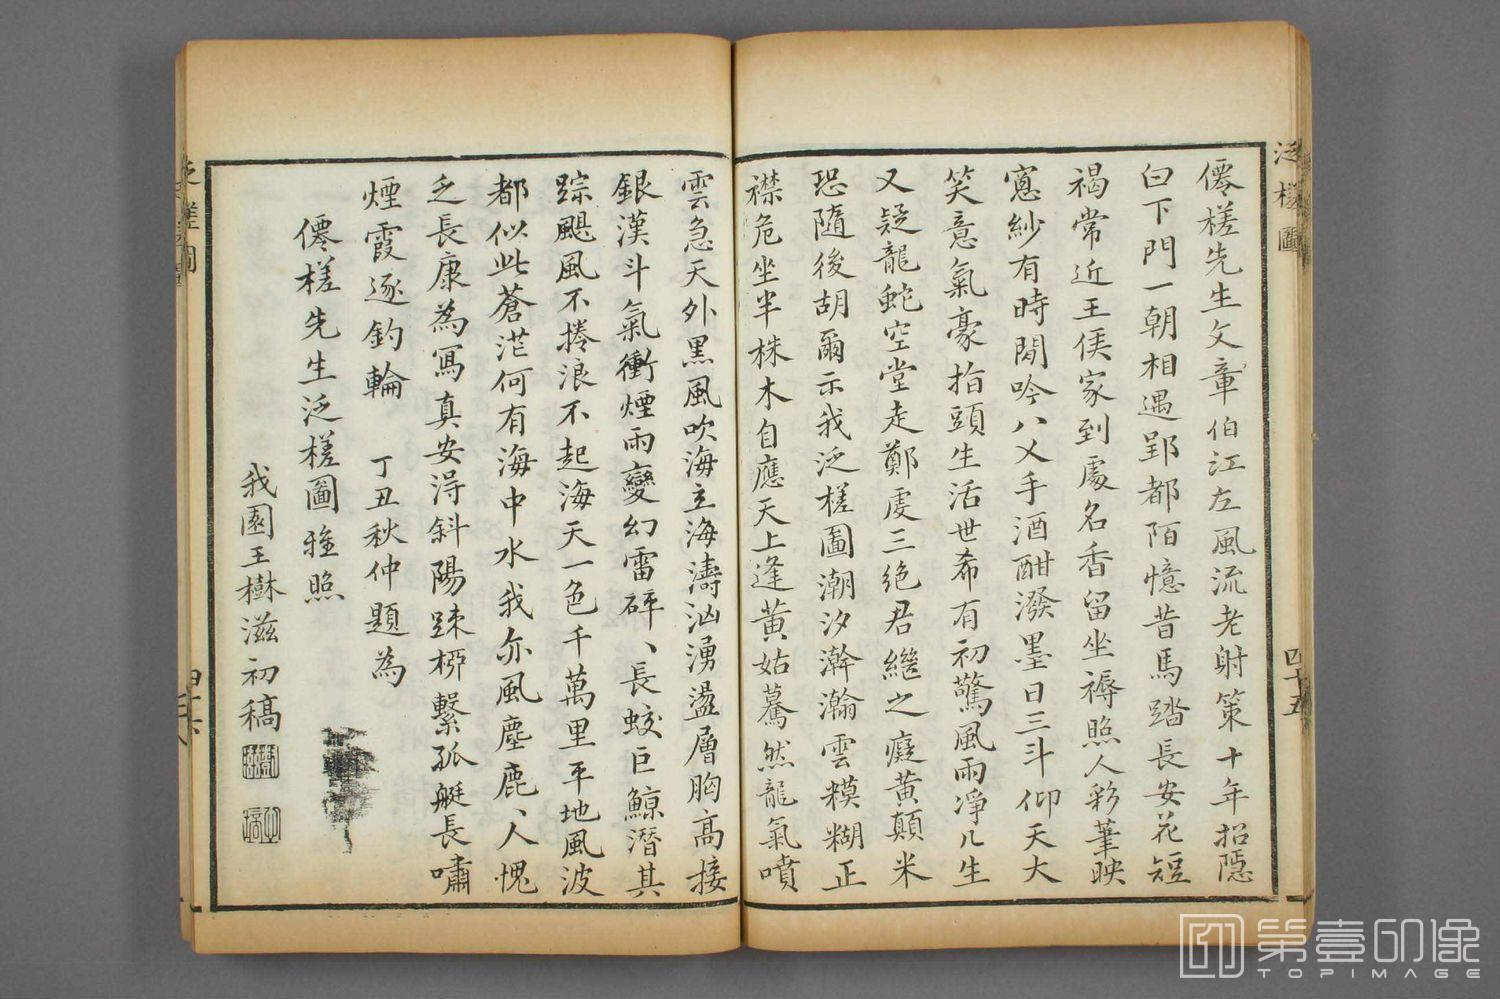 泛槎圖
四十五
僊槎先生文章伯江左風流老射策十年招隱
白下門一朝相遇郢都陌憶昔馬踏長安花短
褐常近王侯家到處名香留坐褥照人彩筆映
窻紗有時閒吟八乂手酒酣潑墨日三斗仰天大
笑意氣豪指頭生活世希有初驚風雨凈几生
又疑龍蛇空堂走鄭虔三絶君繼之癡黃顛米
恐隨後胡爾示我泛槎圖潮汐澣瀚雲糢糊正
襟危坐半株木自應天上逢黃姑驀然龍氣噴
雲急天外黑風吹海立海濤汹湧盪層胸高接
銀漢斗氣衝煙雨變幻雷砰、長蛟巨鯨潛其
踪颶風不捲浪不起海天一色千萬里平地風波
都似此蒼茫何有海中水我亦風塵鹿、人愧
乏長康為寫真安淂斜陽踈栁繫孤艇長嘯
煙霞逐釣輪 丁丑秋仲題為
僊槎先生泛槎圖雅照
我園王樹滋初稿
泛槎圖
四十六
第壹印像
TOPIMAGE